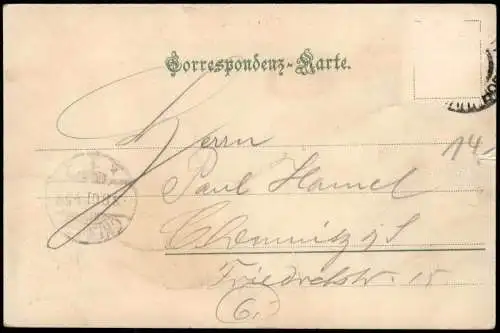 Correspondenz-Karte.
Herrn
14
Paul Hamel
Chemnitz i/S
Friedrichstr. 15.
6.